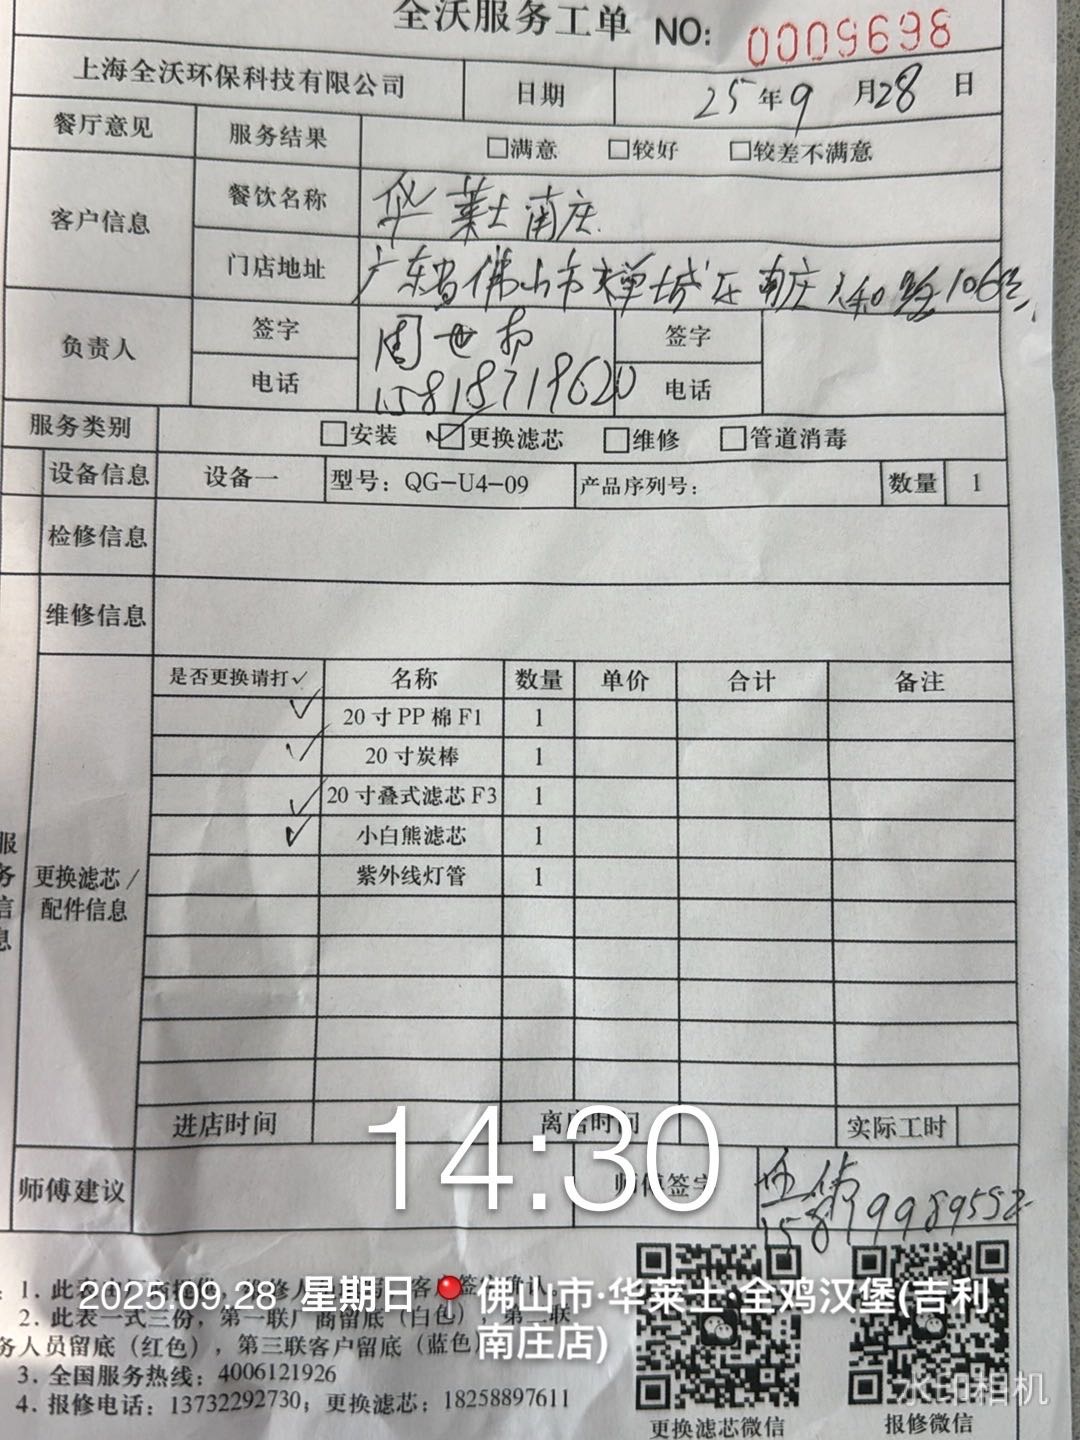 全沃服务工单 NO: 0005698
上海全沃环保科技有限公司 日期 25年9月28日
餐厅意见 服务结果 □满意 □较好 □较差不满意
客户信息 餐饮名称 华莱士南庄
门店地址 广东省佛山市禅城区南庄 106号
负责人 签字 周世 签字
电话 15818719620 电话
服务类别 □安装 ☑更换滤芯 □维修 □管道消毒
设备信息 设备一 型号：QG-U4-09 产品序列号： 数量 1
检修信息
维修信息
是否更换请打✓ 名称 数量 单价 合计 备注
✓ 20寸PP棉F1 1
✓ 20寸炭棒 1
✓ 20寸叠式滤芯F3 1
✓ 小白熊滤芯 1
紫外线灯管 1
服务信息
更换滤芯/
配件信息
进店时间 离店时间 实际工时
14:30
师傅建议 师傅签字
15819989552
1. 此表
2025.09.28 星期日 佛山市·华莱士·全鸡汉堡(吉利
南庄店)
2. 此表一式三份，第一联厂商留底（白色），第二联
务人员留底（红色），第三联客户留底（蓝色
3. 全国服务热线：4006121926
4. 报修电话：13732292730；更换滤芯：18258897611
更换滤芯微信 报修微信
水印相机